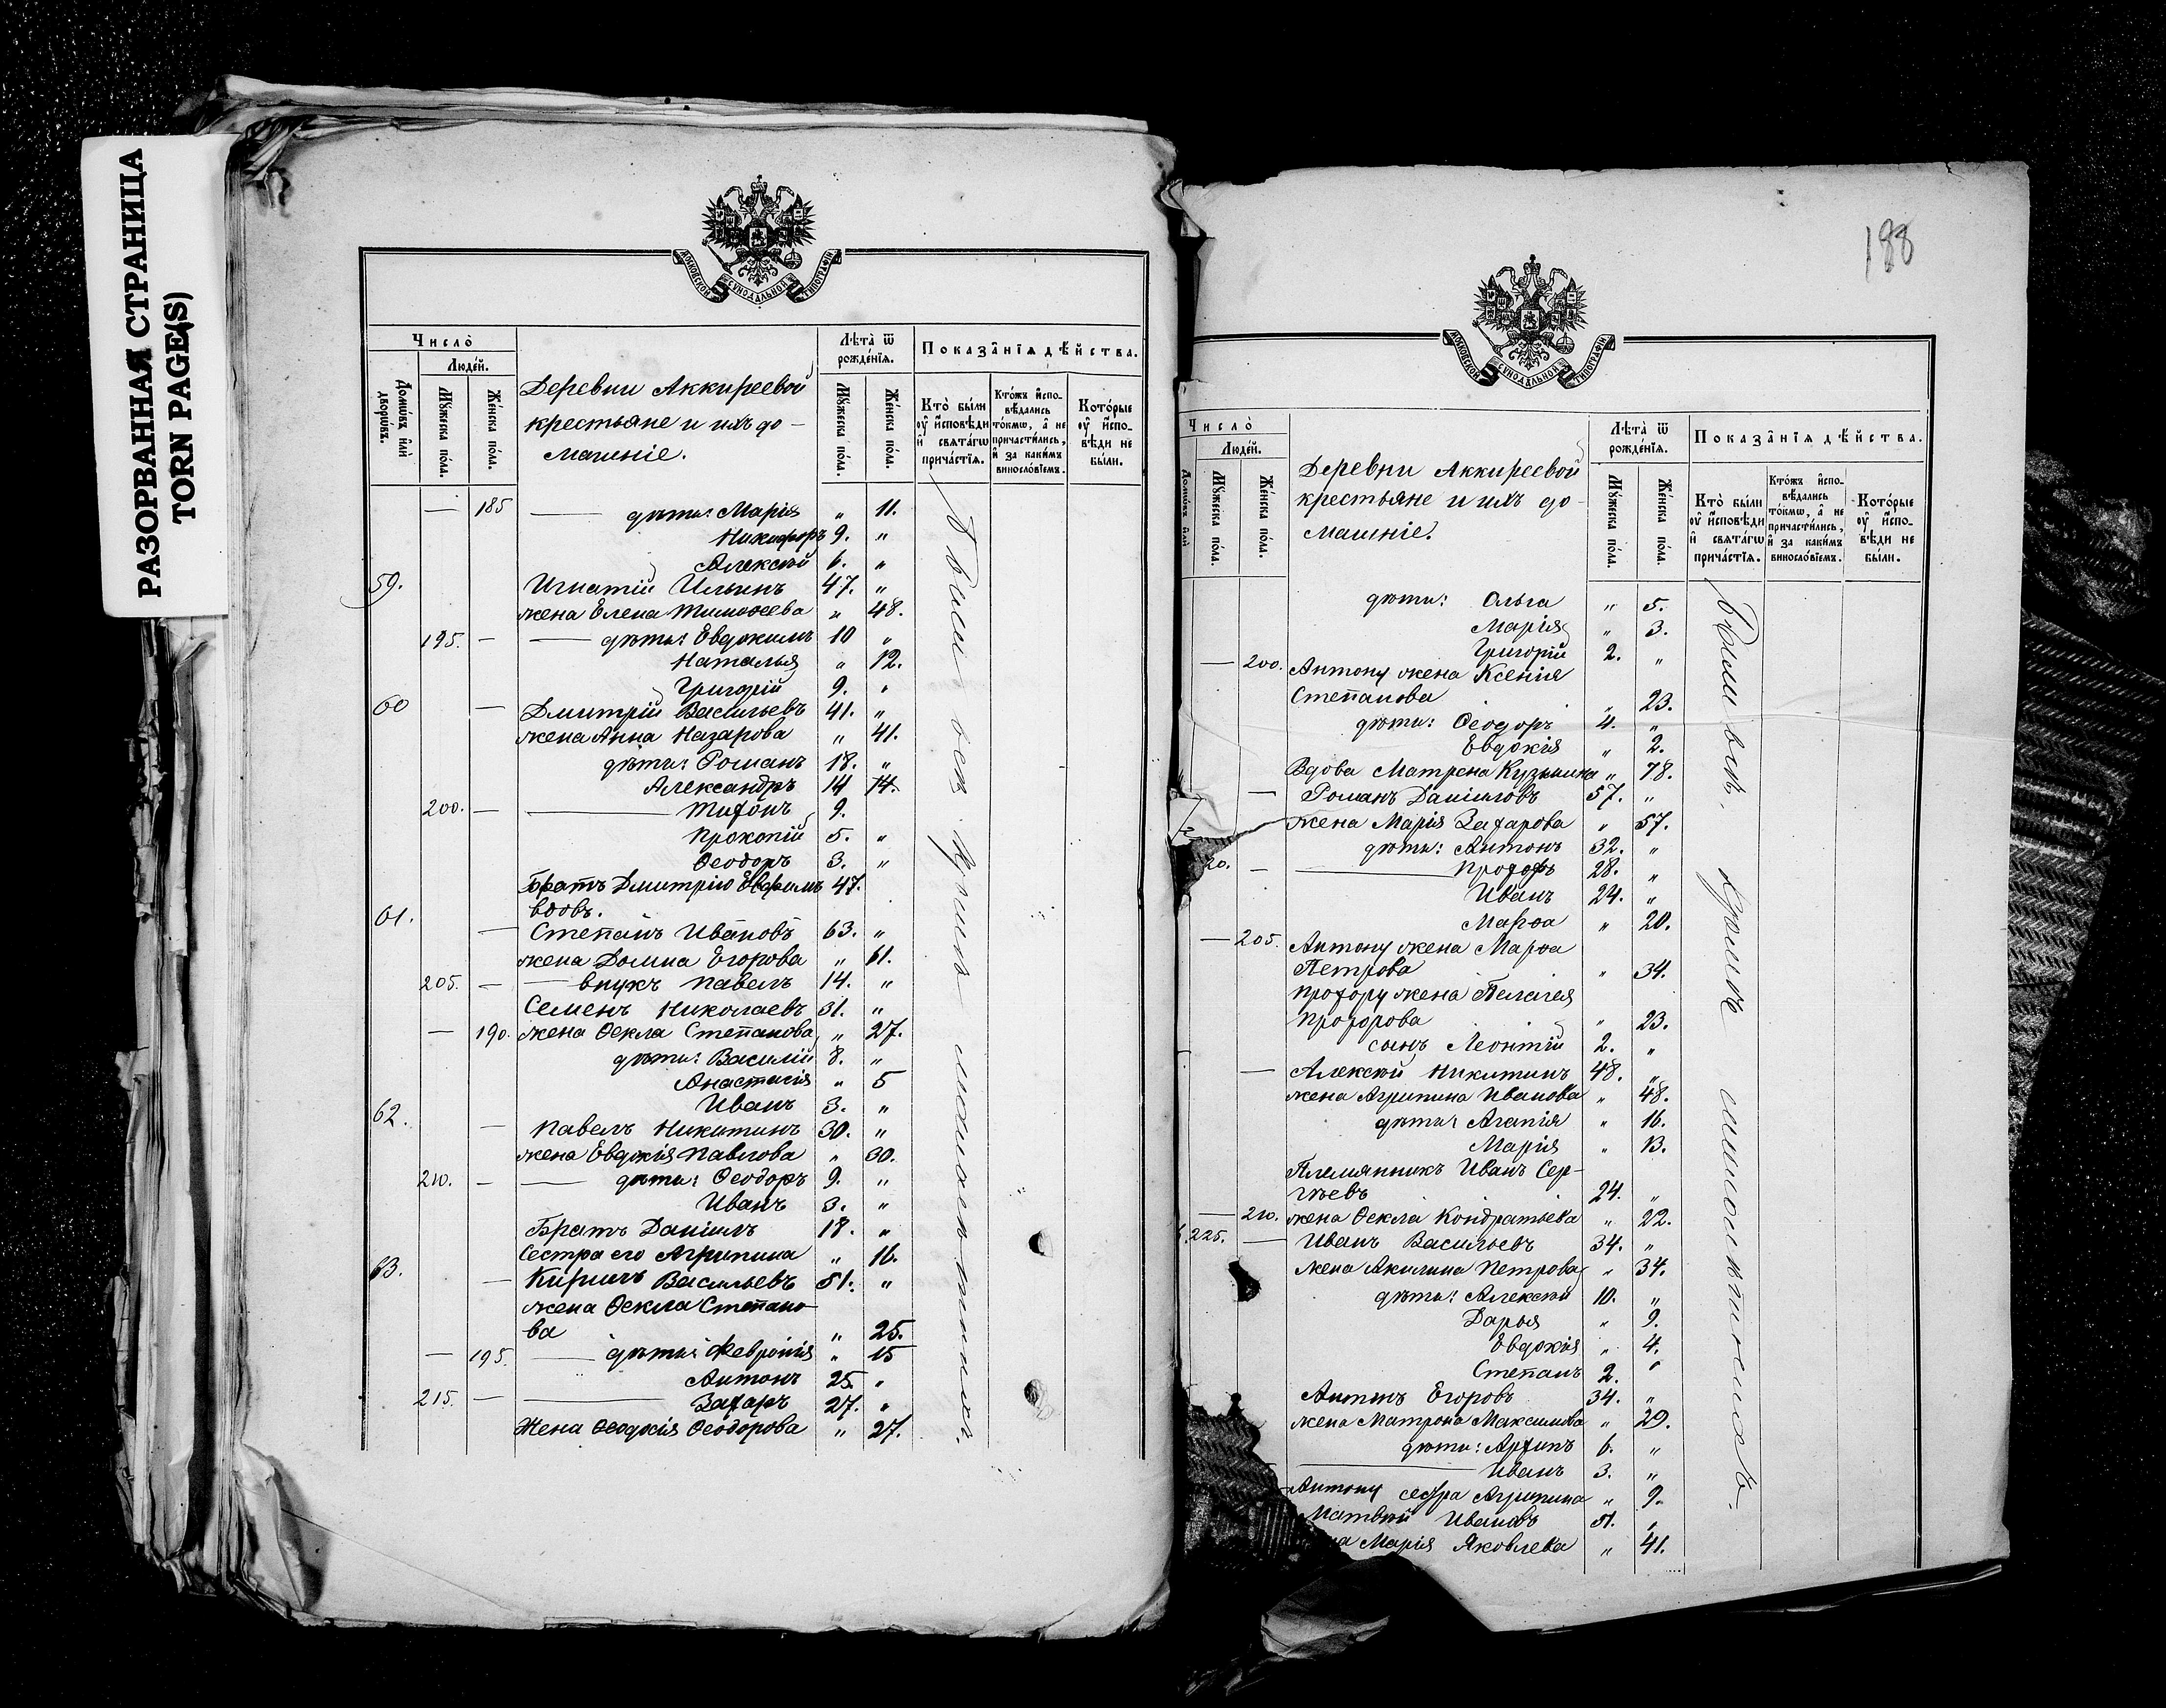 РАЗОРВАННАЯ СТРАНИЦА
TORN PAGE(S)
МОСКОВСКОЙ СѴНОДАЛЬНОЙ ТИПОГРАФІИ
Число̀
Людей.
Домѡвъ и҆лѝ дворѡвъ.
Мꙋжеска пола.
Женска пола.
Деревни Аккиреевой
крестьяне и ихъ до-
машніе.
Лѣта̀ ѿ рожденїѧ.
Мꙋжеска пола.
Женска пола.
Показанїѧ дѣйства.
Кто̀ были ᲂу҆ и҆сповѣди и҆ свѧтагѡ причастїѧ.
Ктожъ и҆спо-вѣдались токмѡ, а҆ не причастились, и҆ за какимъ винословїемъ.
Которые ᲂу҆ и҆спо-вѣди не были.
— 185 дѣти: Марія „ 11.
Никифоръ 9. „
Алексѣй 6. „
59. Игнатій Ильинъ 47. „
жена Елена Тимоѳеева „ 48.
195. — дѣти: Евдокимъ 10 „
Наталья „ 12.
Григорій 9. „
60 — Дмитрій Васильевъ 41. „
жена Анна Назарова „ 41.
дѣти: Романъ 18. „
Александръ 14 14.
200. — Тифонъ 9.
Прокопій 5. „
Ѳеодоръ 3. „
Братъ Дмитрію Евфимъ 47.
вдовъ.
61. — Степанъ Ивановъ 63. „
жена Домна Егорова „ 61.
205. — внукъ Павелъ 14. „
Семенъ Николаевъ 31. „
— 190. жена Ѳекла Степанова „ 27.
дѣти: Василій 8. „
Анастасія „ 5
Иванъ 3. „
62. — Павелъ Никитинъ 30. „
жена Евдокія Павлова „ 30.
210. — дѣти: Ѳеодоръ 9. „
Иванъ 3. „
Братъ Даніилъ 18. „
Сестра его Агрипина „ 16.
63. — Кирилъ Васильевъ 51. „
жена Ѳекла Степано-
ва „ 25.
— 195. дѣти: Февронія „ 15
Антонъ 25. „
215. — Захаръ 27. „
Жена Ѳеодосія Ѳеодорова „ 27.
Были всѣ кромѣ малолѣтнихъ.
188
МОСКОВСКОЙ СѴНОДАЛЬНОЙ ТИПОГРАФІИ
Число̀
Людей.
Домѡвъ и҆лѝ
Мꙋжеска пола.
Женска пола.
Деревни Аккиреевой
крестьяне и ихъ до-
машніе.
Лѣта̀ ѿ рожденїѧ.
Мꙋжеска пола.
Женска пола.
Показанїѧ дѣйства.
Кто̀ были ᲂу҆ и҆сповѣди и҆ свѧтагѡ причастїѧ.
Ктожъ и҆спо-вѣдались токмѡ, а҆ не причастились, и҆ за какимъ винословїемъ.
Которые ᲂу҆ и҆спо-вѣди не были.
дѣти: Ольга „ 5.
Марія „ 3.
Григорій 2. „
— 200. Антону жена Ксенія
Степанова „ 23.
дѣти: Ѳеодоръ 4. „
Евдокія „ 2.
Вдова Матрена Кузьмина „ 78.
— Романъ Даніиловъ 57. „
жена Марія Захарова „ 57.
дѣти: Антонъ 32. „
20. — Прохоръ 28. „
Иванъ 24. „
Марѳа „ 20.
— 205. Антону жена Марѳа
Петрова „ 34.
Прохору жена Пелагея
Прохорова „ 23.
сынъ Леонтій 2. „
— Алексѣй Никитинъ 48. „
жена Агрипина Иванова „ 48.
дѣти: Агапія „ 16.
Марія „ 13.
Племянникъ Иванъ Сер-
гѣевъ 24. „
— 210. жена Ѳекла Кондратьева „ 22.
225. — Иванъ Васильевъ 34. „
жена Акилина Петрова „ 34.
дѣти: Алексѣй 10. „
Дарья „ 9.
Евдокія „ 4.
Степанъ 2. „
Антонъ Егоровъ 34. „
жена Матрона Максимова „ 29.
дѣти: Архипъ 6. „
Иванъ 3. „
Антону сестра Агрипина „ 9.
Матвѣй Ивановъ 51. „
на Марія Яковлева „ 41.
Были всѣ, кромѣ малолѣтнихъ.